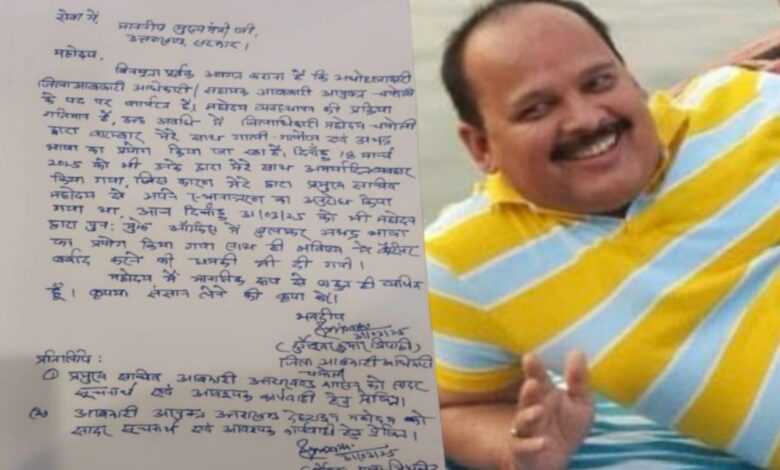 सेवा में,
माननीय मुख्यमंत्री जी,
उत्तराखण्ड सरकार।
महोदय,
विनम्रता पूर्वक अवगत कराना है कि अधोहस्ताक्षरी
जिला आबकारी अधिकारी/सहायक आबकारी आयुक्त - चमोली
के पद पर कार्यरत है। महोदय व्यवस्थापन की प्रक्रिया
गतिमान है, उक्त अवधि में जिलाधिकारी महोदय - चमोली
द्वारा बारम्बार मेरे साथ गाली-गलौच एवं अभद्र
भाषा का प्रयोग किया जा रहा है, दिनाँक 18 मार्च
2025 को भी उनके द्वारा मेरे साथ अमर्यादित व्यवहार
किया गया, जिस कारण मेरे द्वारा प्रमुख सचिव
महोदय से अपने स्थानान्तरण का अनुरोध किया
गया था। आज दिनाँक 31/03/25 को भी महोदय
द्वारा पुनः मुझे ऑफिस में बुलाकर अभद्र भाषा
का प्रयोग किया गया साथ ही भविष्य कैरियर
बर्बाद करने की धमकी भी दी गयी।
महोदय में मानसिक रूप से बहुत ही व्यथित
हूँ। कृपया संज्ञान लेने की कृपा करें।
भवदीय
31/03/25
(दुर्गेश्वर कुमार त्रिपाठी)
जिला आबकारी अधिकारी
चमोली
प्रतिलिपि:
① प्रमुख सचिव आबकारी उत्तराखण्ड शासन को सादर
सूचनार्थ एवं आवश्यक कार्यवाही हेतु प्रेषित।
② आबकारी आयुक्त उत्तराखण्ड देहरादून महोदय को
सादर सूचनार्थ एवं आवश्यक कार्यवाही हेतु प्रेषित।
31/03/25